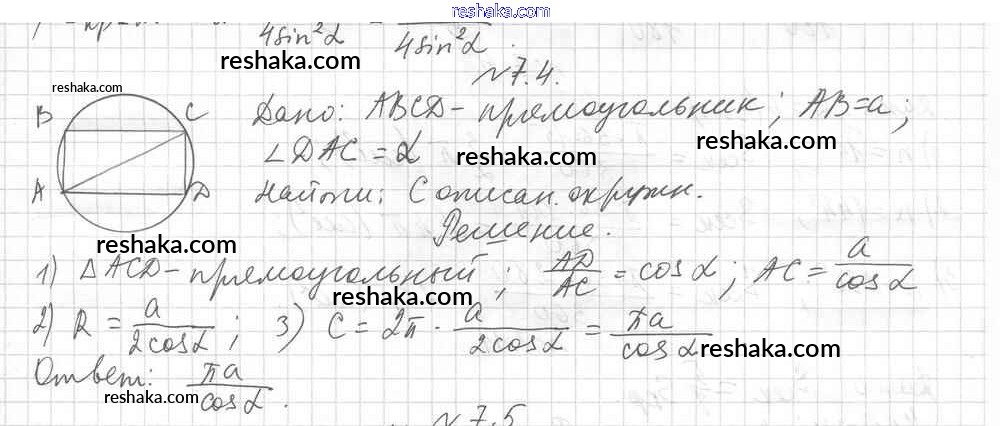 reshaka.com
4sin²α = 4sin²α .
reshaka.com
reshaka.com
№7.4.
reshaka.com
B C
A D
Дано: ABCD - прямоугольник; AB=a;
reshaka.com
∠DAC = α
reshaka.com
Найти: C описан. окружн.
Решение.
reshaka.com
1) ΔACD - прямоугольный; AD/AC = cosα; AC = a/cosα
reshaka.com
2) R = a/2cosα; 3) C = 2π · a/2cosα = πa/cosα
reshaka.com
Ответ: πa/cosα.
reshaka.com
№7.5